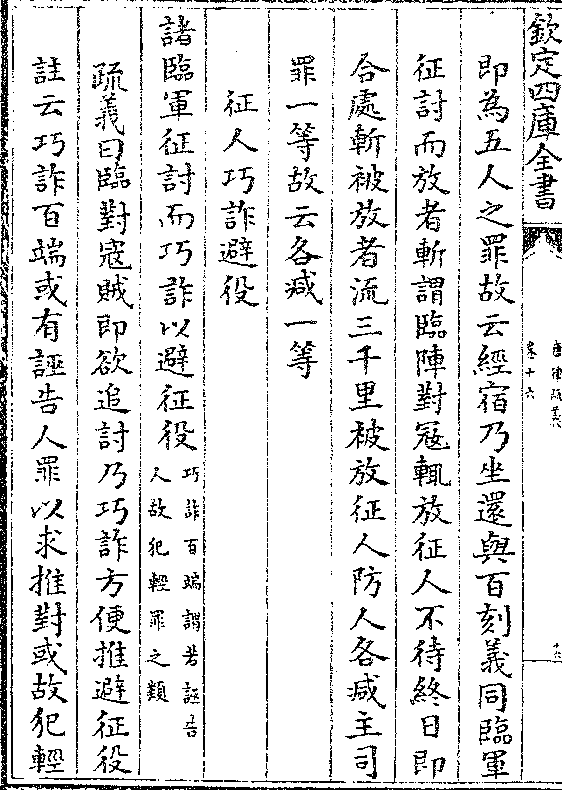 欽定四庫全書
唐律疏義
卷十六
即為五人之罪故云經宿乃坐還與百刻義同臨軍
征討而放者斬謂臨陣對寇輒放征人不待終日即
合處斬被放者流三千里被放征人防人各减主司
罪一等故云各减一等
征人巧詐避役
諸臨軍征討而巧詐以避征役巧詐百端謂若誣告
人故犯輕罪之類
疏義曰臨對寇賊即欲追討乃巧詐方便推避征役
註云巧詐百端或有誣告人罪以求推對或故犯輕